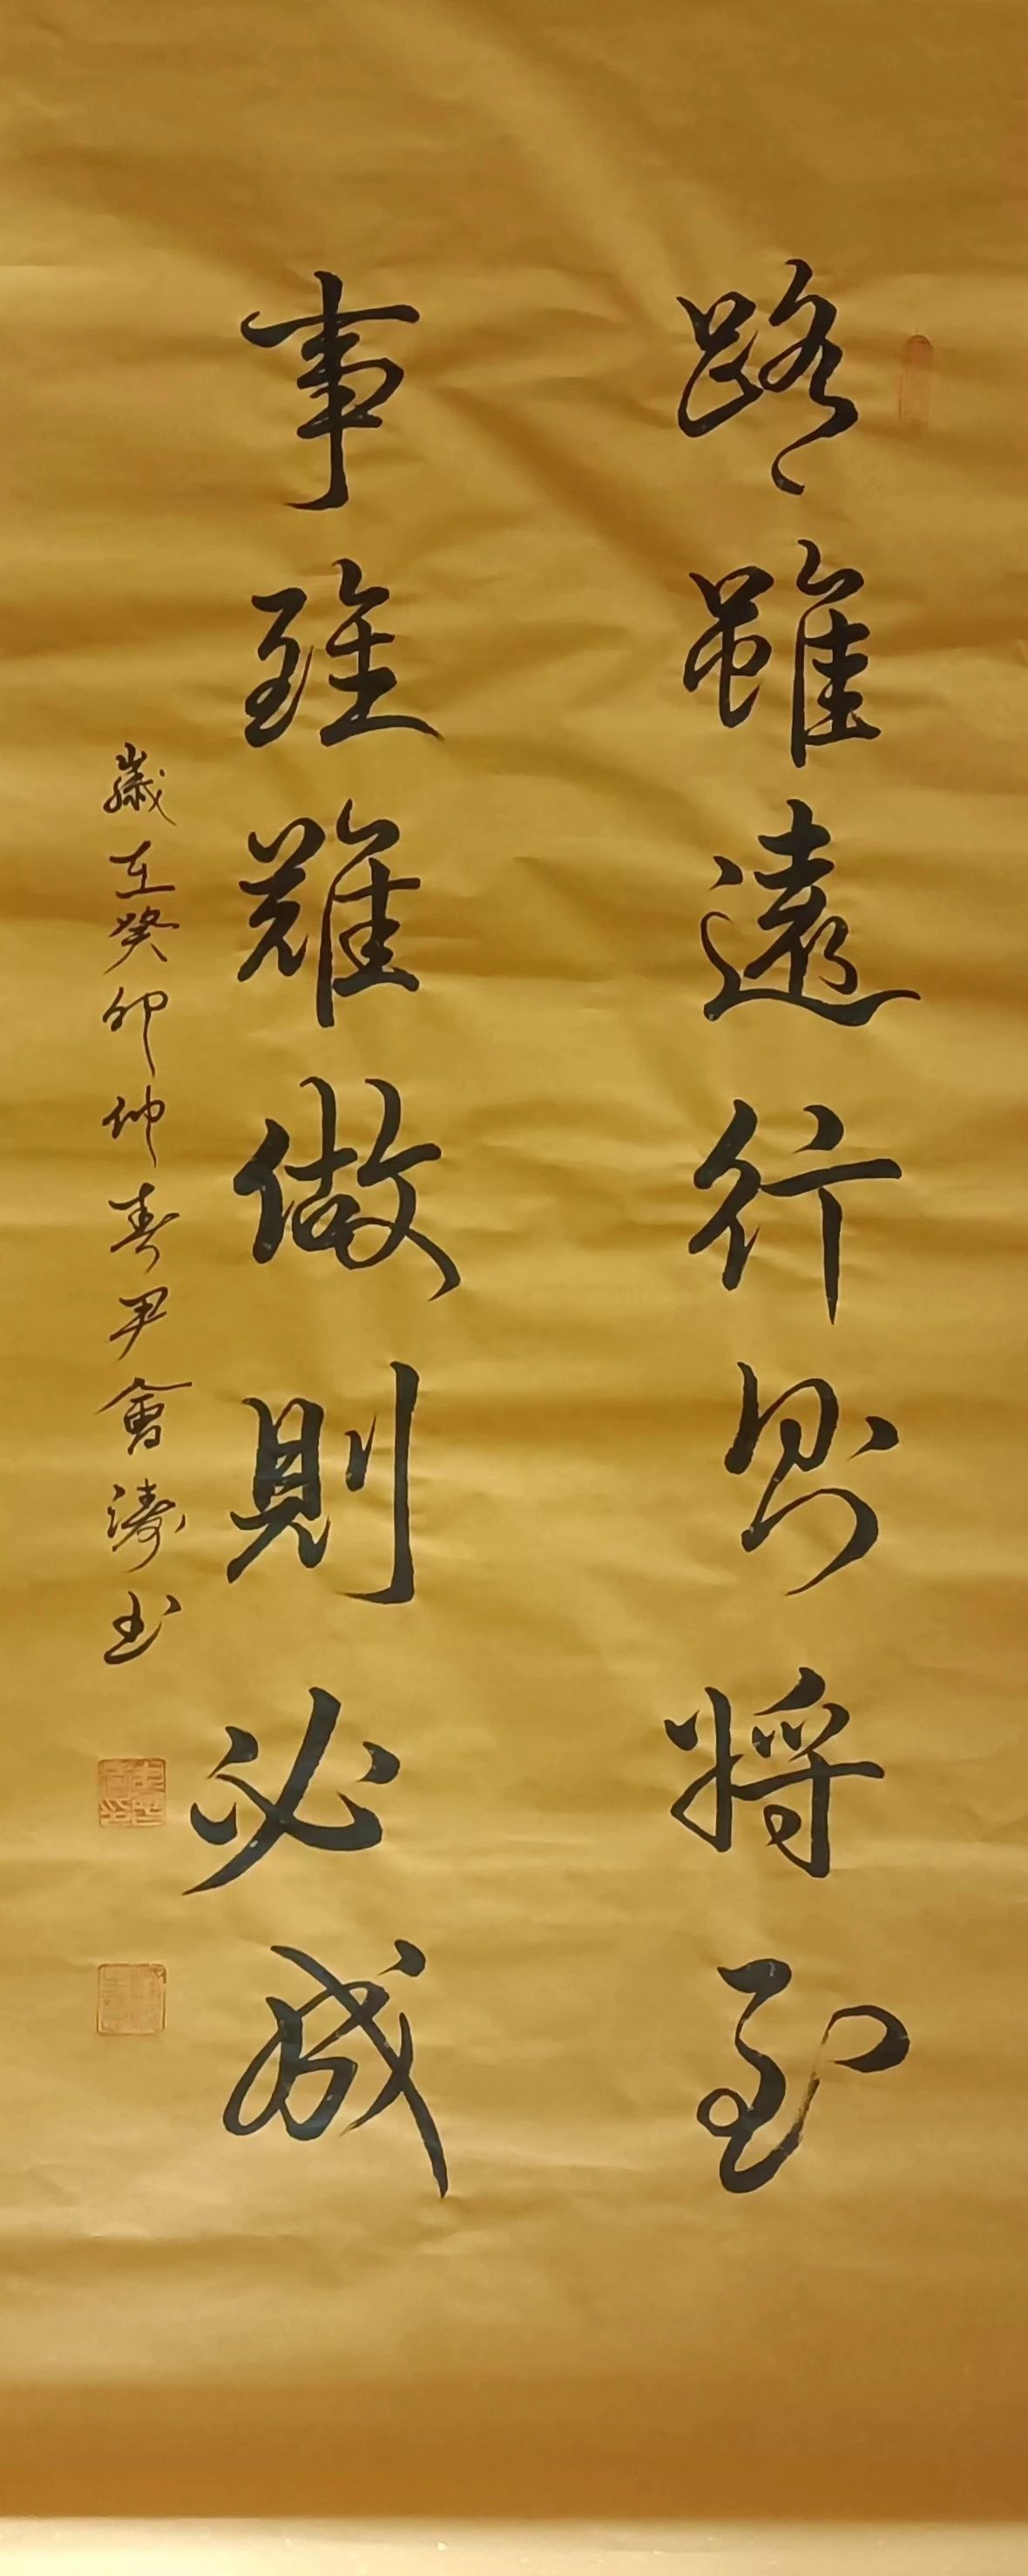 路雖遠行則將至
事雖難做則必成
歲在癸卯仲春尹會濤书